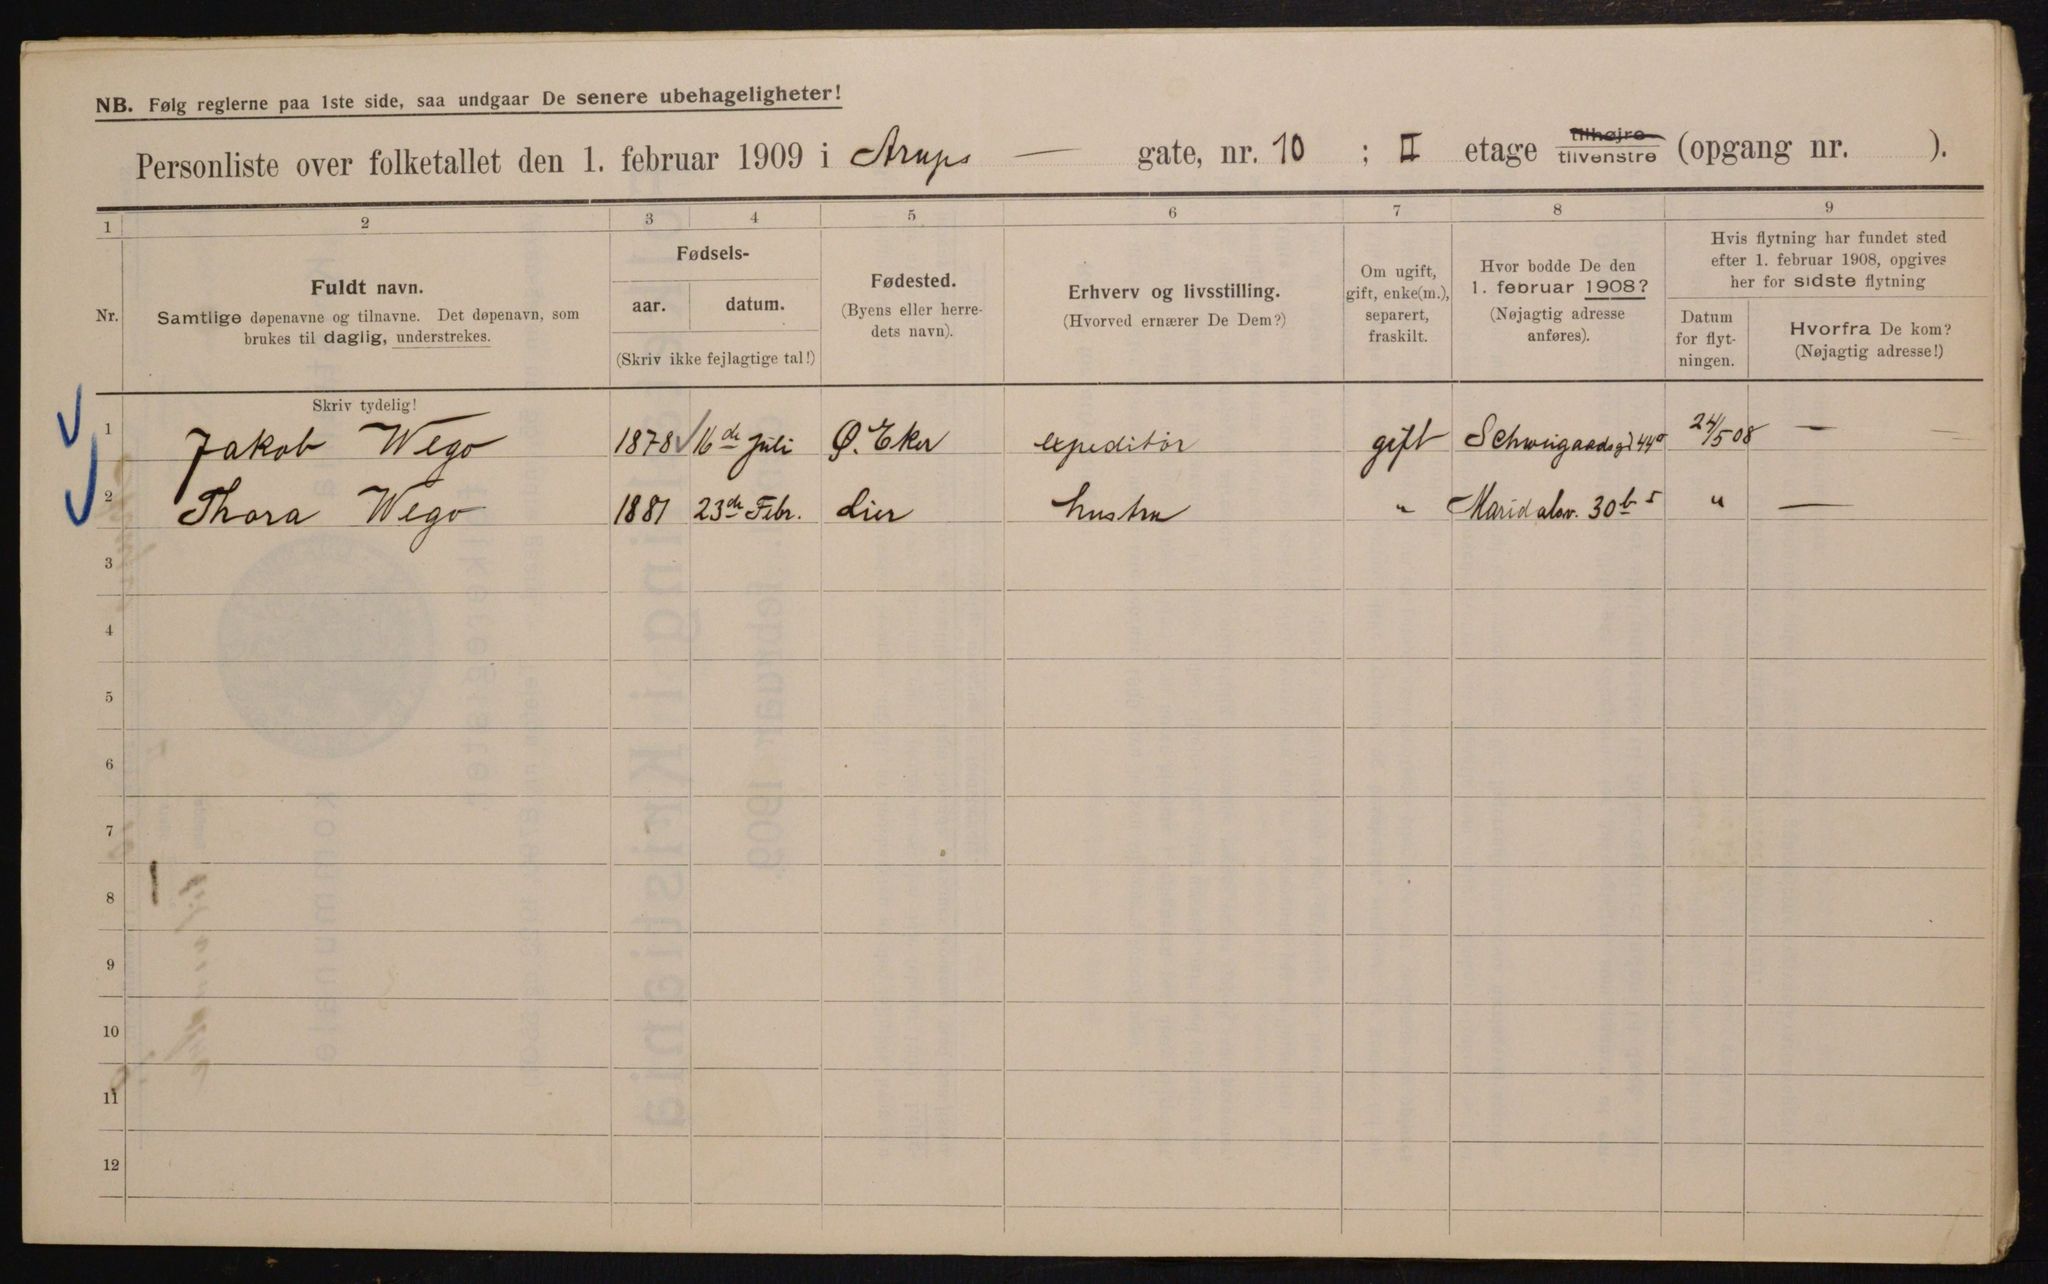 NB. Følg reglerne paa 1ste side, saa undgaar De senere ubehageligheter!
Personliste over folketallet den 1. februar 1909 i Arups — gate, nr. 10 ; II etage tilhøjre tilvenstre (opgang nr. ).
1 2 3 4 5 6 7 8 9
Nr.
Fuldt navn.
Samtlige døpenavne og tilnavne. Det døpenavn, som
brukes til daglig, understrekes.
Fødsels-
aar. datum.
(Skriv ikke fejlagtige tal!)
Fødested.
(Byens eller herre-
dets navn).
Erhverv og livsstilling.
(Hvorved ernærer De Dem?)
Om ugift,
gift, enke(m.),
separert,
fraskilt.
Hvor bodde De den
1. februar 1908?
(Nøjagtig adresse
anføres).
Hvis flytning har fundet sted
efter 1. februar 1908, opgives
her for sidste flytning
Datum
for flyt-
ningen.
Hvorfra De kom?
(Nøjagtig adresse!)
Skriv tydelig!
1 Jakob Wego 1878 16de juli Ø. Eker expeditør gift Schweigaardsgd 44 24/5 08 —
2 Thora Wego 1881 23de Febr. Lier hustru " Maridalsv. 30b 5 " —
3
4
5
6
7
8
9
10
11
12